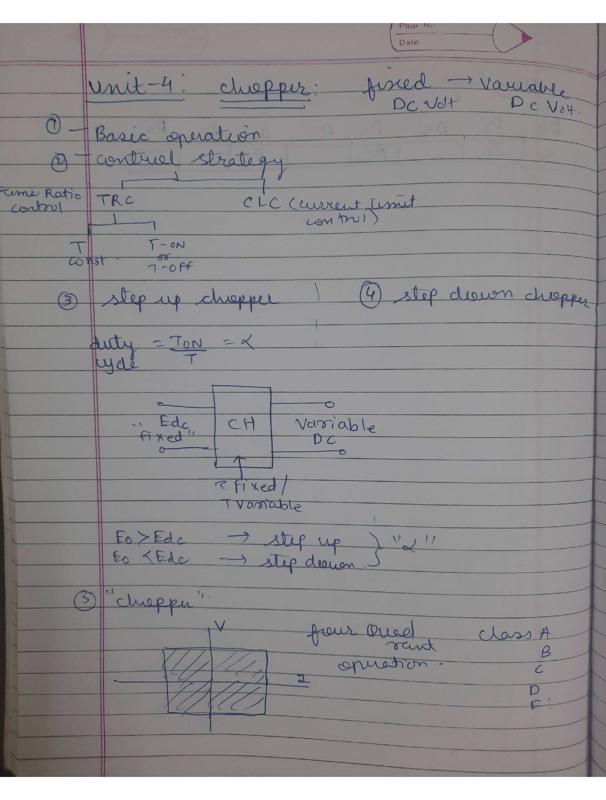 Page No.
Date
Unit-4: Chopper: fixed → Variable
DC Volt DC Volt.
① - Basic operation
② - Control strategy
Time Ratio control TRC CLC (current limit control)
T const. T-ON or T-OFF
③ step up chopper ④ step down chopper
duty cycle = TON/T = α
Edc "fixed" CH Variable DC
T fixed/
T Variable
E0 > Edc → step up
E0 < Edc → step down } "α"
⑤ "chopper".
V
I
four Quad
rant
operation.
Class A
B
C
D
E